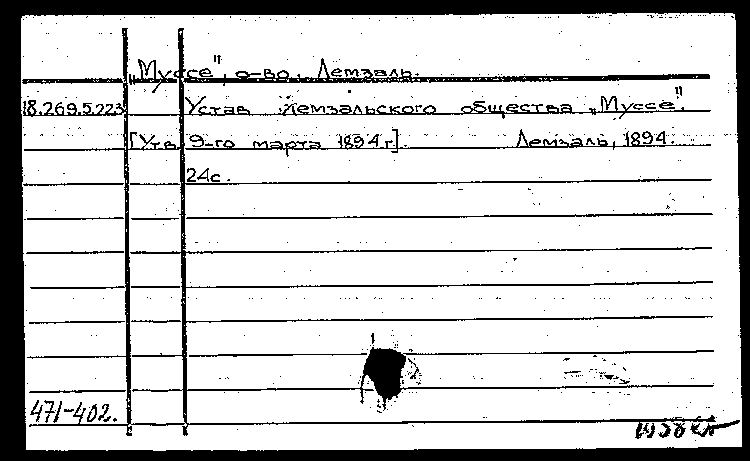 „Муссе", о-во. Лемзаль.
18.269.5.223 Устав Лемзальского общества „Муссе".
[Утв. 9-го марта 1894 г.] Лемзаль, 1894.
24с.
471-402.